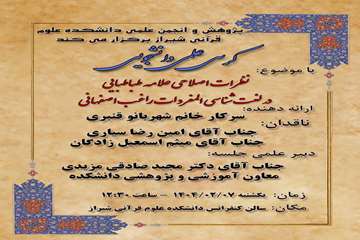 پژوهش و انجمن علمی دانشکده علوم
قرآنی شیراز برگزار می کند
کرسی علمی دانشجویی
با موضوع:
نظرات اصلاحی علامه طباطبایی
در لغت شناسی المفردات راغب اصفهانی
ارائه دهنده:
سرکار خانم شهربانو قنبری
ناقدان:
جناب آقای امین رضا ستاری
جناب آقای میثم اسمعیل زادگان
دبیر علمی جلسه:
جناب آقای دکتر مجید صادقی مزیدی
معاون آموزشی و پژوهشی دانشکده
زمان: یکشنبه ۱۴۰۴/۰۲/۰۷ - ساعت ۱۲:۳۰
مکان: سالن کنفرانس دانشکده علوم قرآنی شیراز